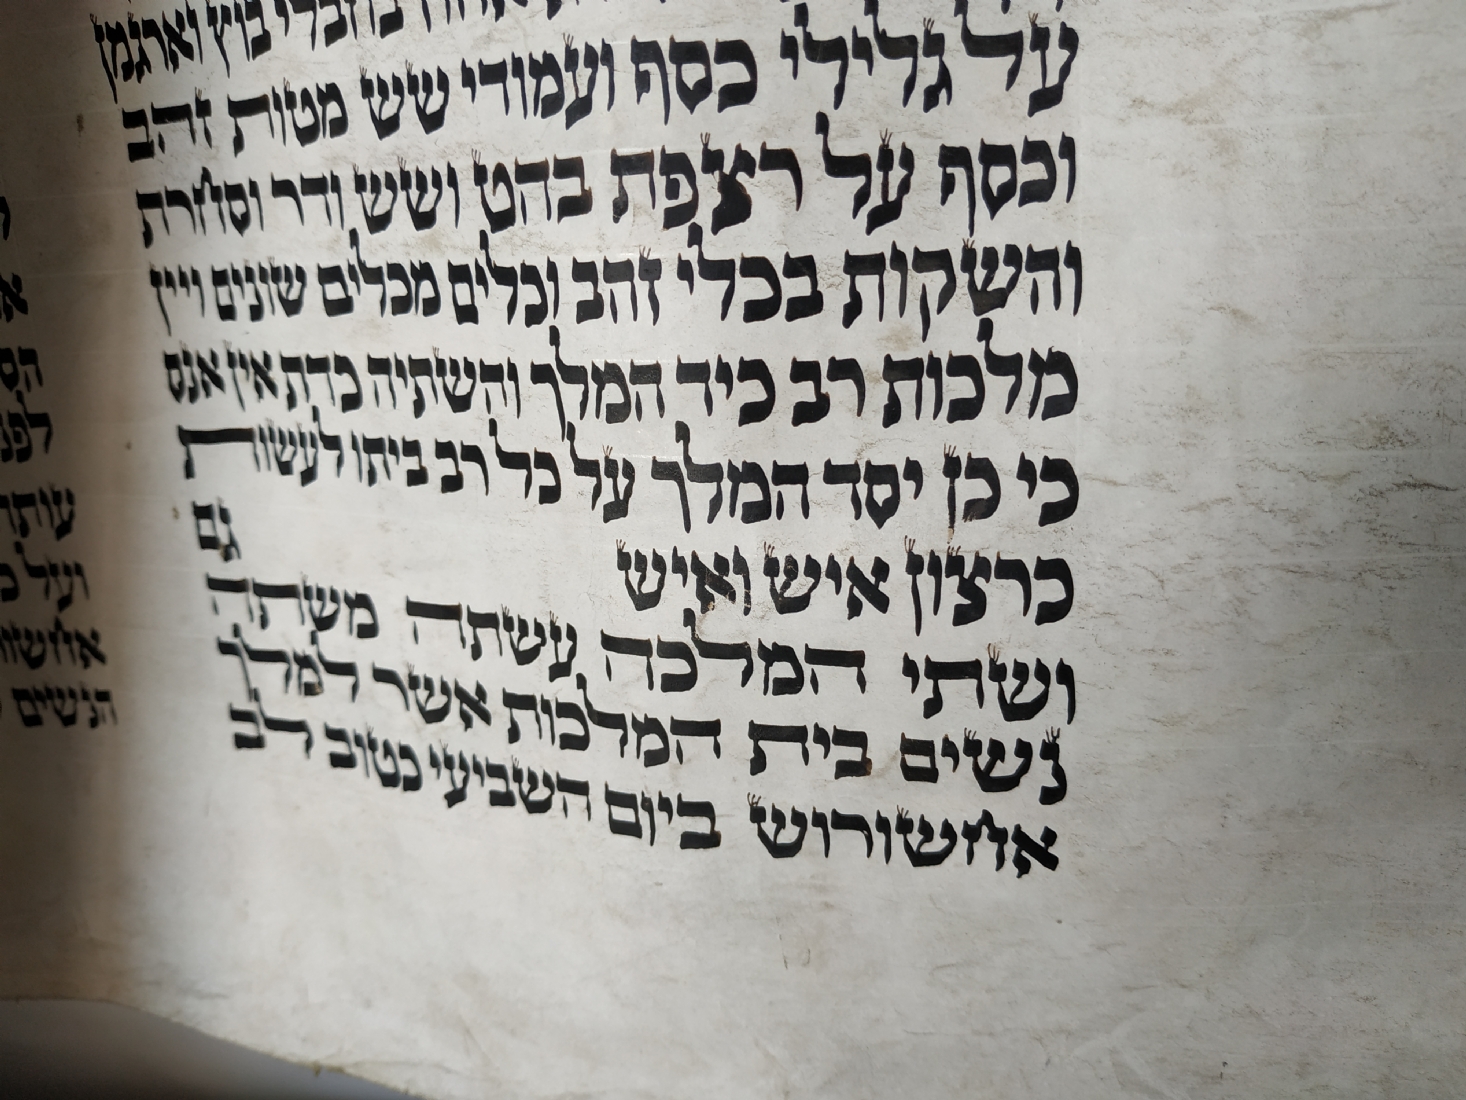 בחבלי בוץ וארגמן
על גלילי כסף ועמודי שש מטות זהב
וכסף על רצפת בהט ושש ודר וסחרת
והשקות בכלי זהב וכלים מכלים שונים ויין
מלכות רב כיד המלך והשתיה כדת אין אנס
כי כן יסד המלך על כל רב ביתו לעשות
כרצון איש ואיש גם
ושתי המלכה עשתה משתה
נשים בית המלכות אשר למלך
אחשורוש ביום השביעי כטוב לב
ועל
הנשים